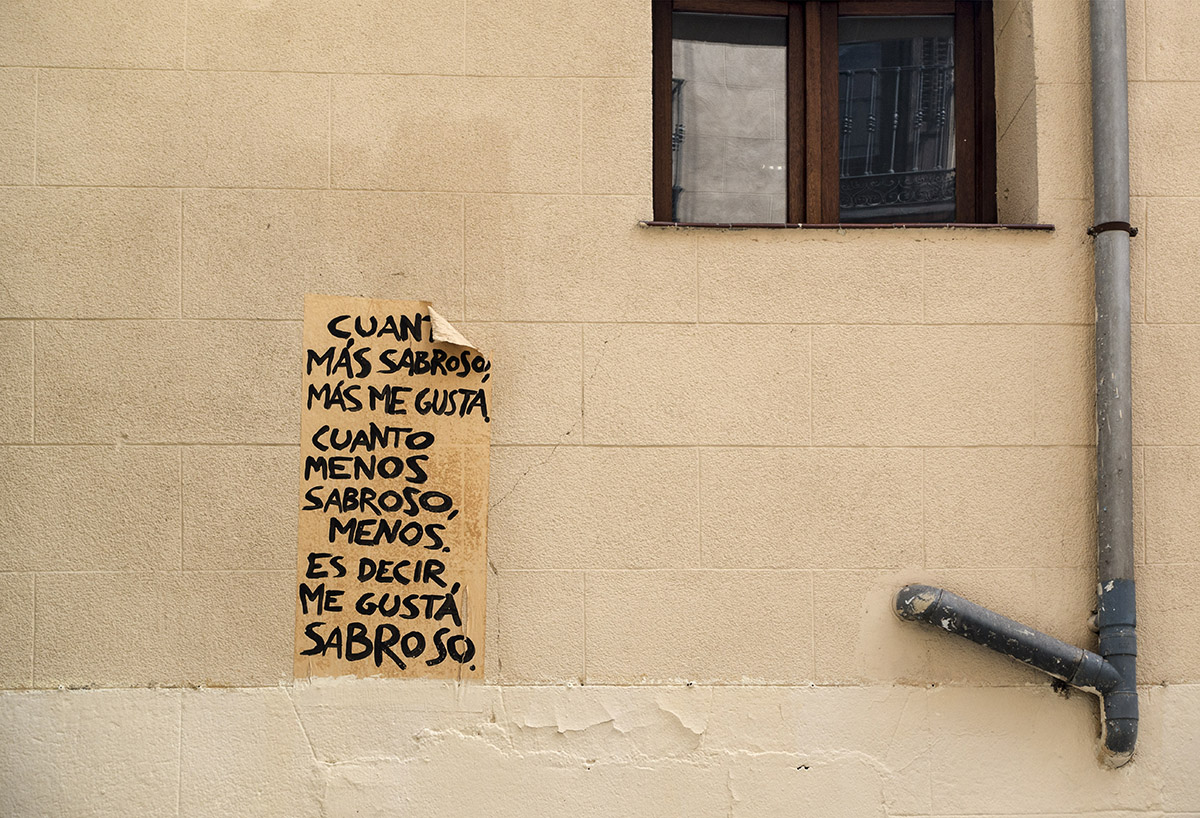 CUANT
MÁS SABROSO,
MÁS ME GUSTA.
CUANTO
MENOS
SABROSO,
MENOS.
ES DECIR,
ME GUSTÁ
SABROSO.